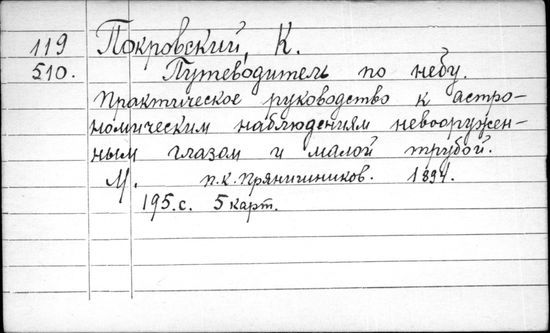 119 Покровский, К.
510. Путеводитель по небу.
Практическое руководство к астро-
номическим наблюдениям невооружен-
ным глазом и малой трубой.
М. п.К.Прянишников. 1894.
195.с. 5 карт.